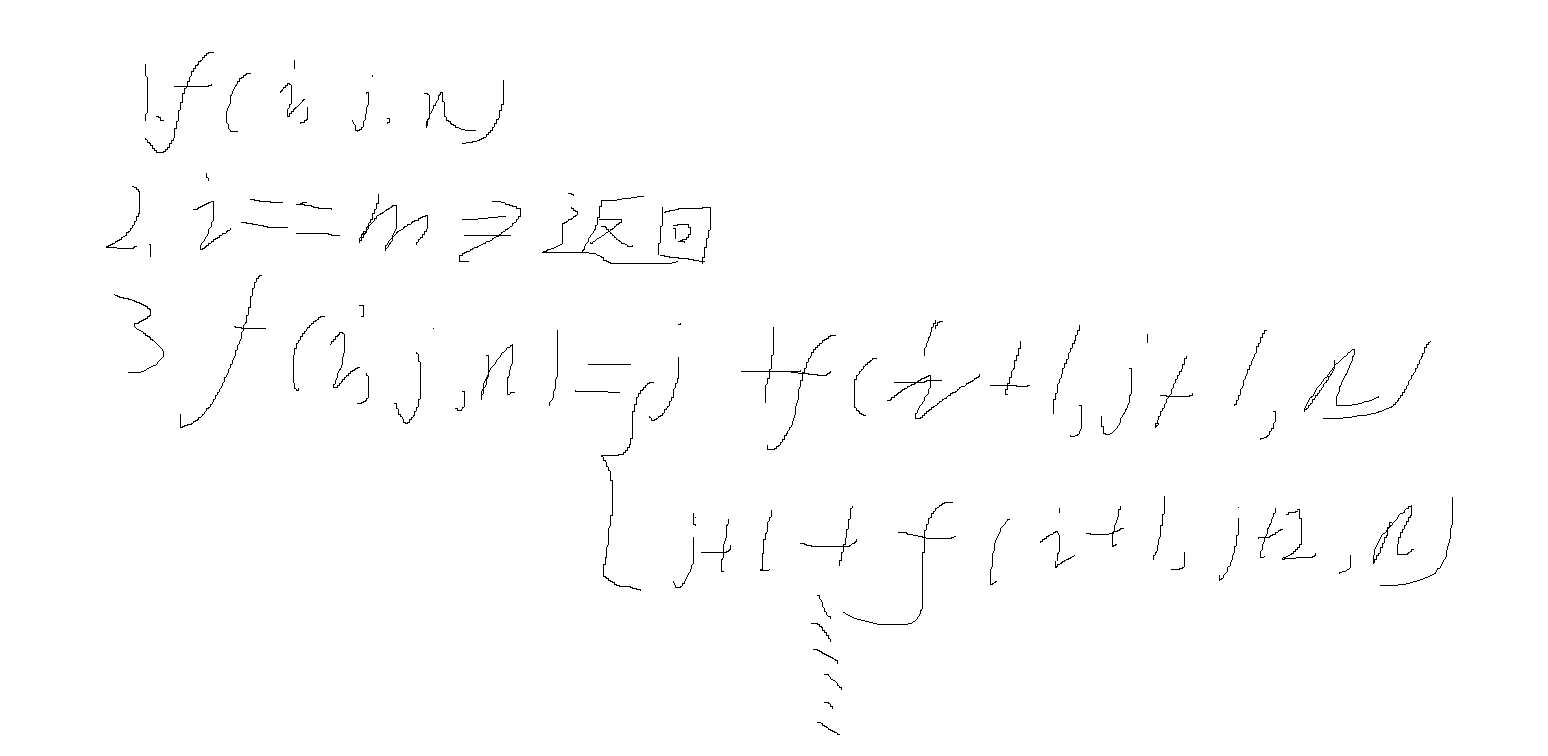 1.f(i,j,n)
2,i==m⇒返回
3 f(i,j,n)=j+f(i+1,j+1,n)
j+1+f(i+1,j+2,n)